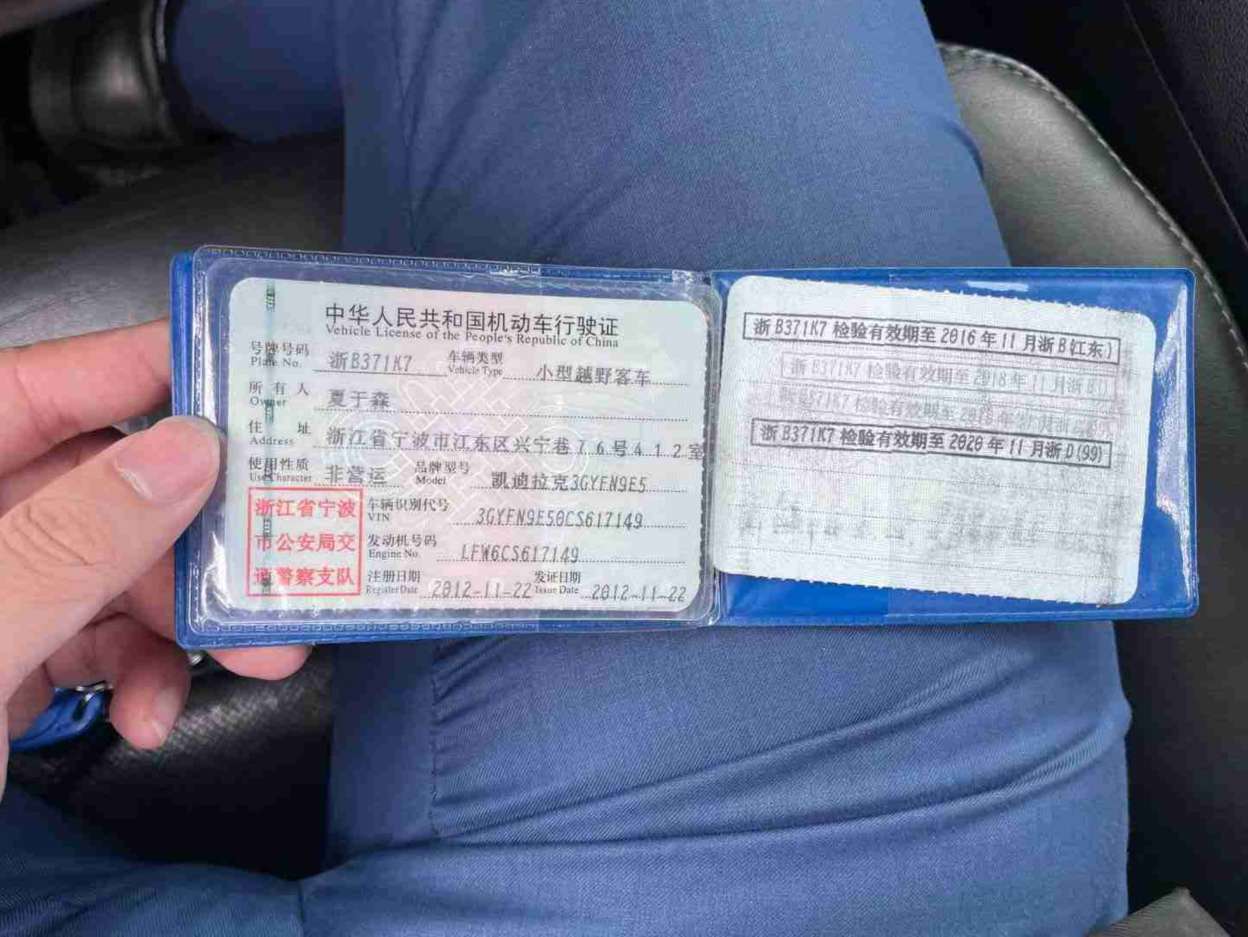 中华人民共和国机动车行驶证
Vehicle License of the People's Republic of China
号牌号码 浙B371K7 车辆类型 小型越野客车
Plate No. Vehicle Type
所有人 夏于森
Owner
住址 浙江省宁波市江东区兴宁巷76号412室
Address
使用性质 非营运 品牌型号 凯迪拉克3GYFN9E5
Use Character Model
浙江省宁波
市公安局交
通警察支队
车辆识别代号 3GYFN9E50CS617149
VIN
发动机号码 LFW6CS617149
Engine No.
注册日期 2012-11-22 发证日期 2012-11-22
Register Date Issue Date
浙B371K7 检验有效期至2016年11月浙B(江东)
浙B371K7 检验有效期至2018年11月浙B
检验有效期至
浙B371K7 检验有效期至2020年11月浙D(99)